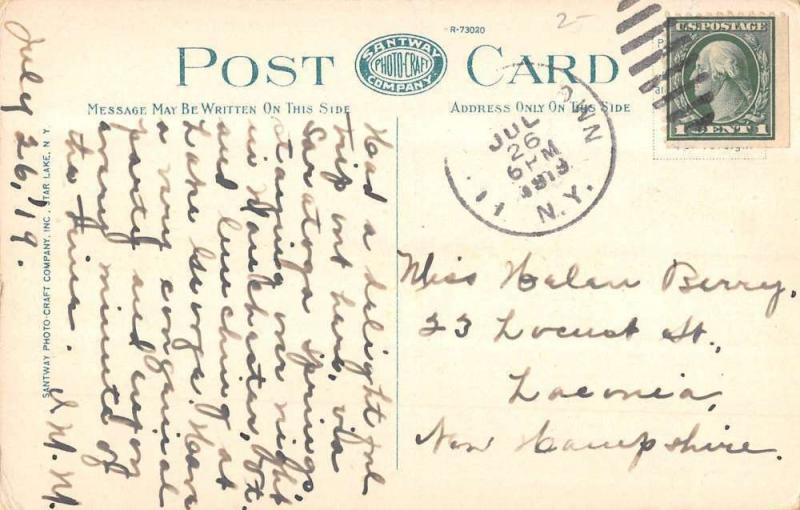 R-73020
2-
POST CARD
SANTWAY
PHOTO-CRAFT
COMPANY.
MESSAGE MAY BE WRITTEN ON THIS SIDE
ADDRESS ONLY ON THIS SIDE
U.S. POSTAGE
1 CENT 1
OWN
JUL
26
6 PM
1919
N.Y.
SANTWAY PHOTO-CRAFT COMPANY, INC., STAR LAKE, N. Y.
July 26, '19.
Had a delightful
trip out here, via
Saratoga Springs,
staying over night
in Manchester, Vt.
and lunching at
Lake George. Have
a very congenial
party and enjoy
every minute of
the time. M. M.
Miss Helen Berry,
23 Locust St.,
Laconia,
New Hampshire.